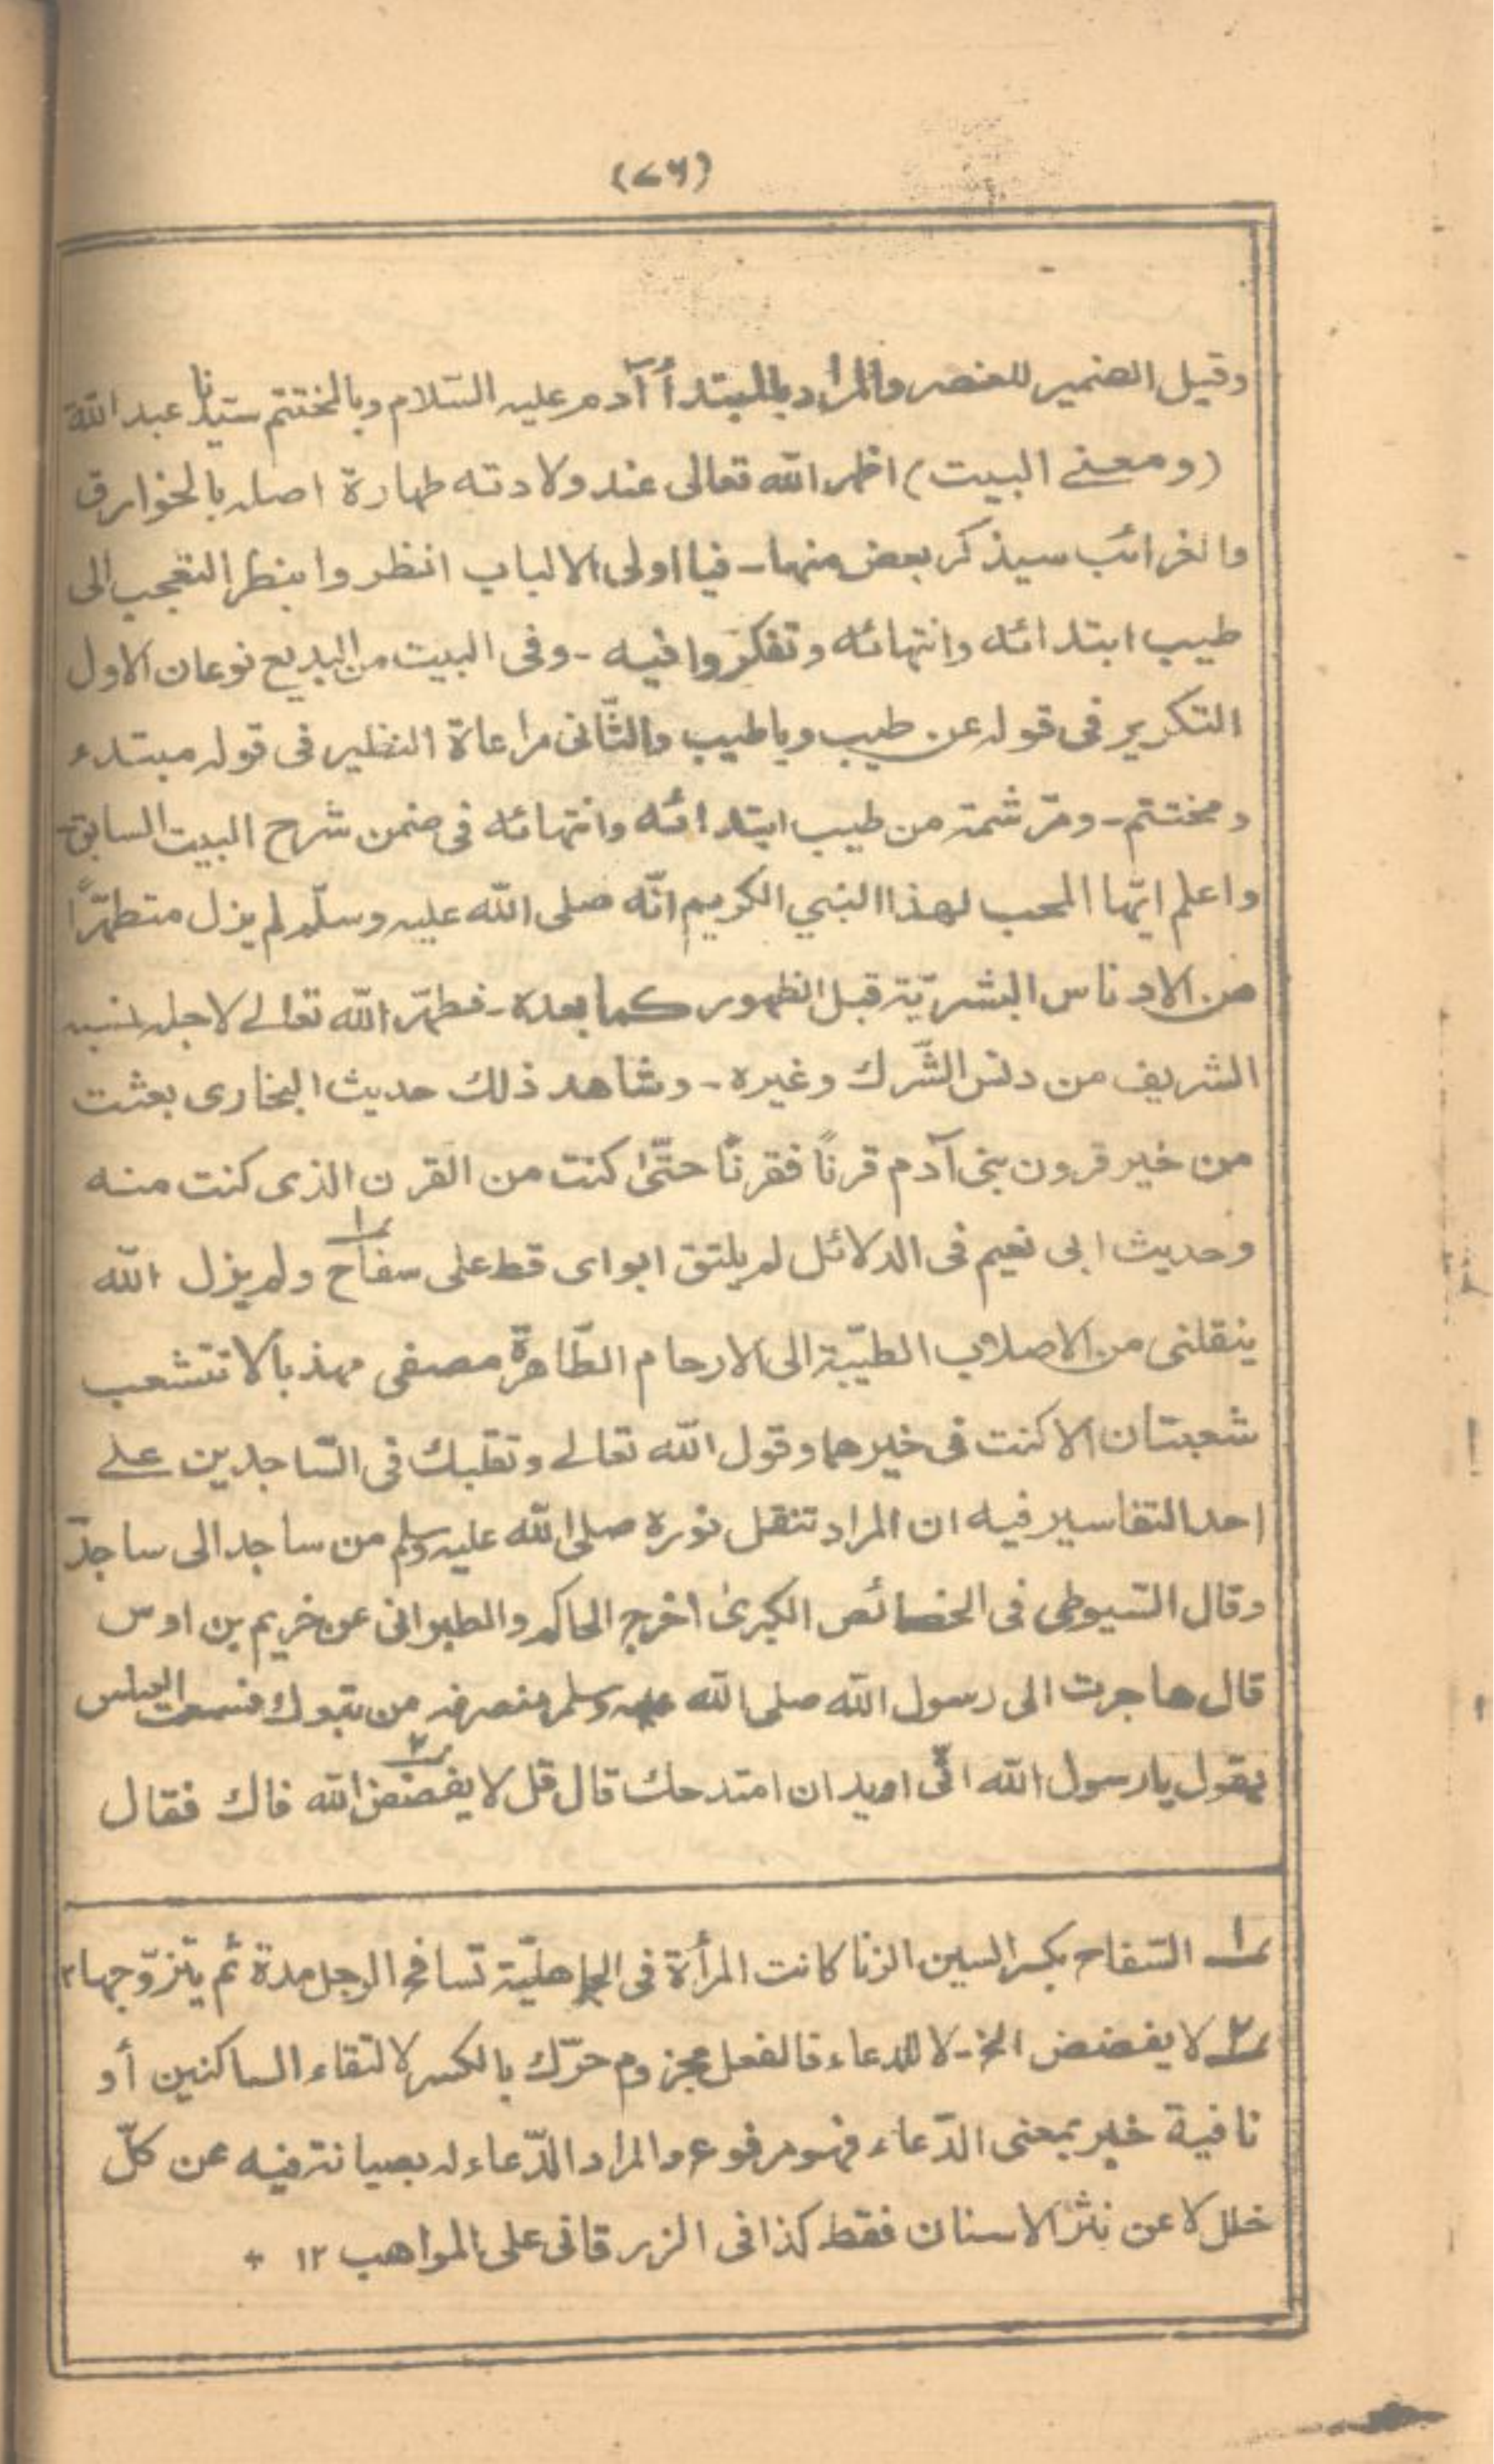 (٧٦)
وقيل الضمير للعنصر والمراد بالمبتدأ آدم عليه السّلام وبالمختتم سيّدنا عبد الله
(ومعنے البيت) اظهر الله تعالى عند ولادته طهارة اصله بالخوارق
والغرائب سيذكر بعض منها ـ فيا اولى الالباب انظروا بنظر التعجب الى
طيب ابتدائه وانتهائه وتفكروا فيه ـ وفى البيت من البديع نوعان الاول
التكرير فى قوله عن طيب وياطيب والثّانى مراعاة النظير فى قوله مبتدء
ومختتم ـ ومرّ شمة من طيب ابتدائه وانتهائه فى ضمن شرح البيت السابق ـ
واعلم ايّها المحب لهذا النبي الكريم انّه صلى الله عليه وسلّم لم يزل متطهّرًا
من الادناس البشريّة قبل الظهور كما بعده ـ فطهّر الله تعالے لاجله نسبه
الشريف من دنس الشّرك وغيره ـ وشاهد ذلك حديث البخارى بعثت
من خير قرون بنى آدم قرنًا فقرنًا حتّىٰ كنت من القرن الذى كنت منه
وحديث ابى نعيم فى الدلائل لم يلتق ابواى قط على سفاح ١ ولم يزل الله
ينقلنى من الاصلاب الطيّبة الى الارحام الطّاهرة مصفى مهذبا لا تتشعب
شعبتان الا كنت فى خيرهما وقول الله تعالے وتقلبك فى السّاجدين علے
احد التفاسير فيه ان المراد تنقل نوره صلى الله عليه وسلم من ساجد الى ساجد ـ
وقال السّيوطى فى الخصائص الكبرىٰ اخرج الحاكم والطبرانى عن خريم بن اوس
قال هاجرت الى رسول الله صلى الله عليه وسلم منصرفه من تبوك فسمعت العباس
يقول يارسول الله انّى اريد ان امتدحك قال قل لا يفضض ٢ الله فاك فقال
١ السّفاح بكسر السين الزنا كانت المرأة فى الجاهليّة تسافح الرجل مدة ثم يتزوّجها ١٢
٢ لا يفضض الخ ـ لا للدعاء فالفعل مجزوم حرّك بالكسر لالتقاء الساكنين أو
نافية خبر بمعنى الدّعاء فهو مرفوع والمراد الدّعاء له بصيانة فيه عن كلّ
خلل لا عن نثر الاسنان فقط كذا فى الزرقانى على المواهب ١٢ +